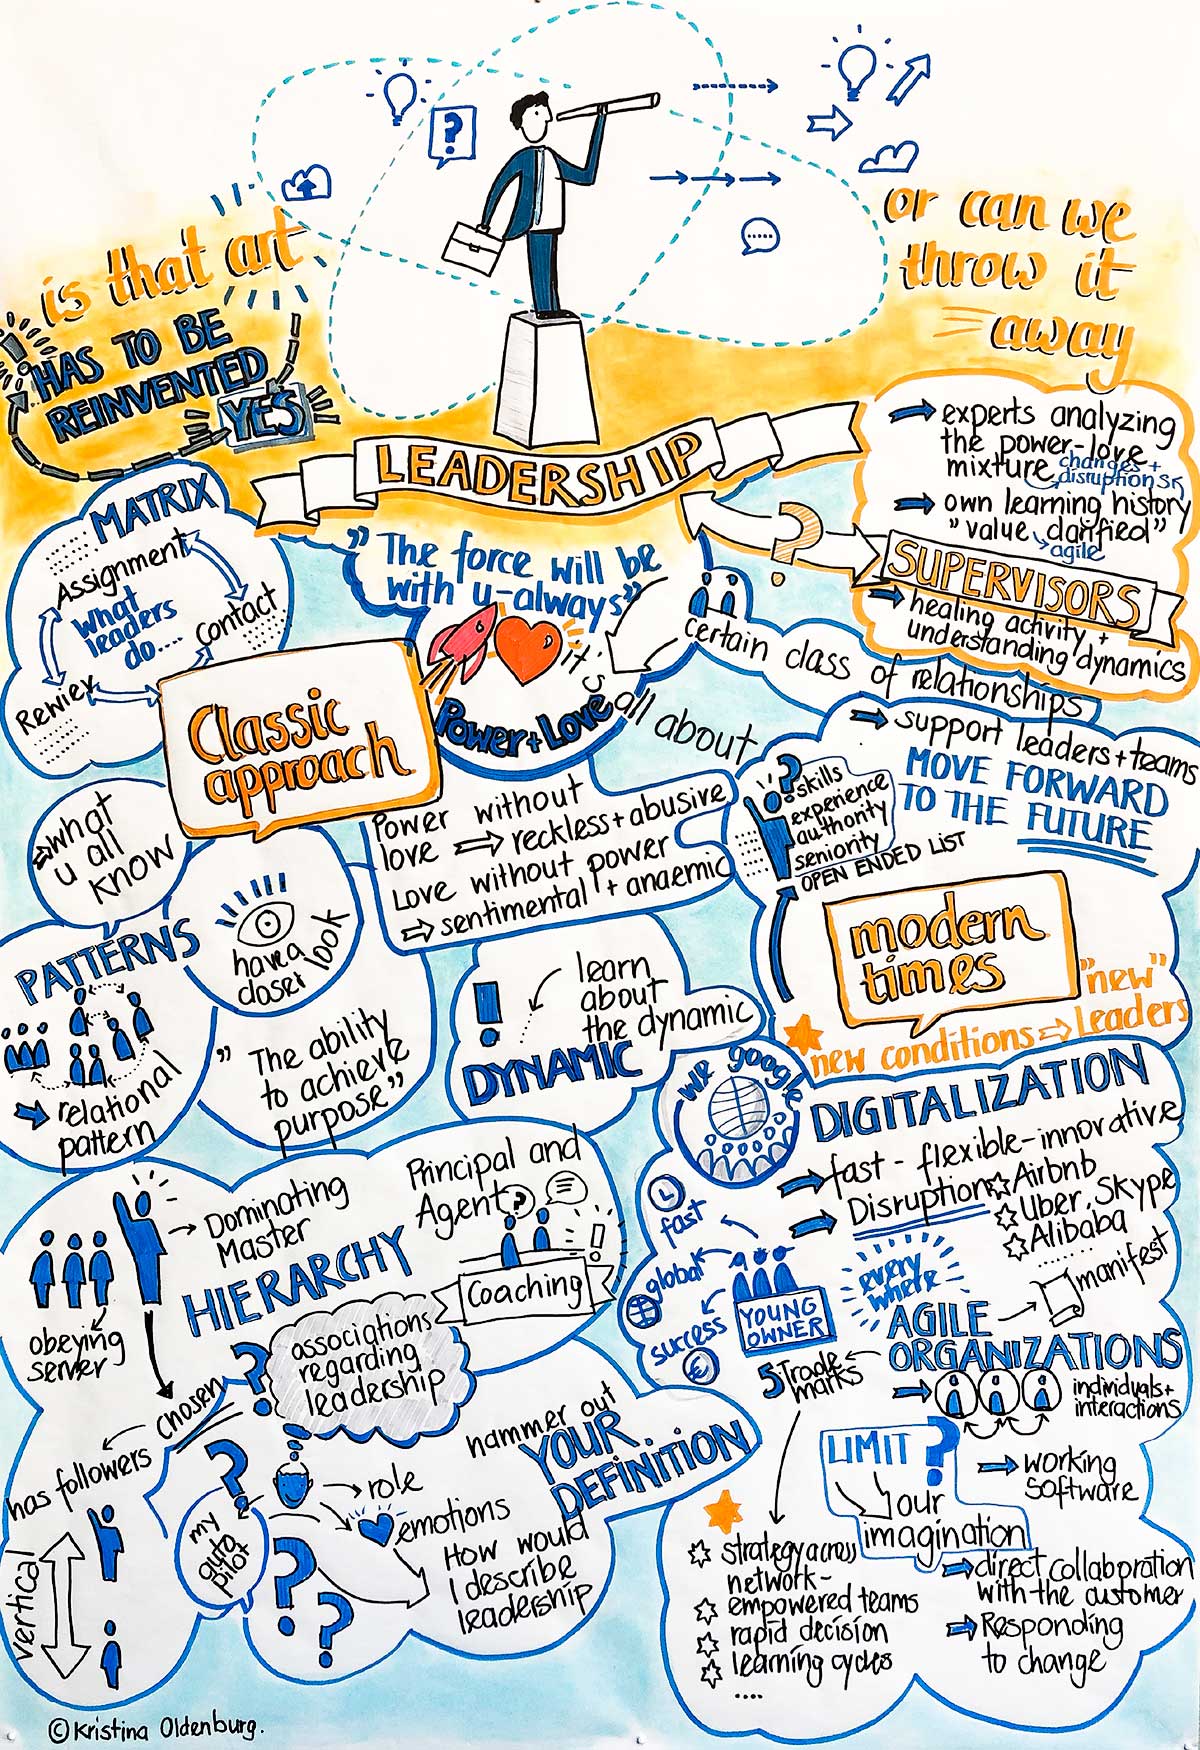 is that art
HAS TO BE
REINVENTED
YES
or can we
throw it
away
LEADERSHIP
experts analyzing
the power-love
mixture
changes +
disruptions
own learning history
"value clarified"
agile
SUPERVISORS
healing activity +
understanding dynamics
support leaders + teams
MOVE FORWARD
TO THE FUTURE
MATRIX
Assignment
what
leaders
do...
contact
Rewiev
"The force will be
with u-always"
Power + Love
it's all about
certain class of relationships
Classic
approach
Power without
love ⇒ reckless + abusive
Love without power
⇒ sentimental + anaemic
skills
experience
authority
seniority
OPEN ENDED LIST
⇒ what
u all
know
have a
closer look
PATTERNS
relational
pattern
"The ability
to achieve
purpose"
learn
about
the dynamic
DYNAMIC
modern
times
"new"
new conditions ⇒ Leaders
we google
DIGITALIZATION
fast - flexible - innovative
Disruption
Airbnb
Uber, Skype
Alibaba
......
fast
global
success
YOUNG
OWNER
every
where
manifest
AGILE
ORGANIZATIONS
5 Trade
marks
individuals +
interactions
working
software
direct collaboration
with the customer
Responding
to change
LIMIT ?
our
imagination
strategy across
network-
empowered teams
rapid decision
learning cycles
....
Dominating
Master
HIERARCHY
obeying
server
Principal and
Agent
Coaching
chosen
has followers
vertical
associations
regarding
leadership
my
auto
pilot
role
emotions
hammer out
YOUR
DEFINITION
How would
I describe
leadership
© Kristina Oldenburg.